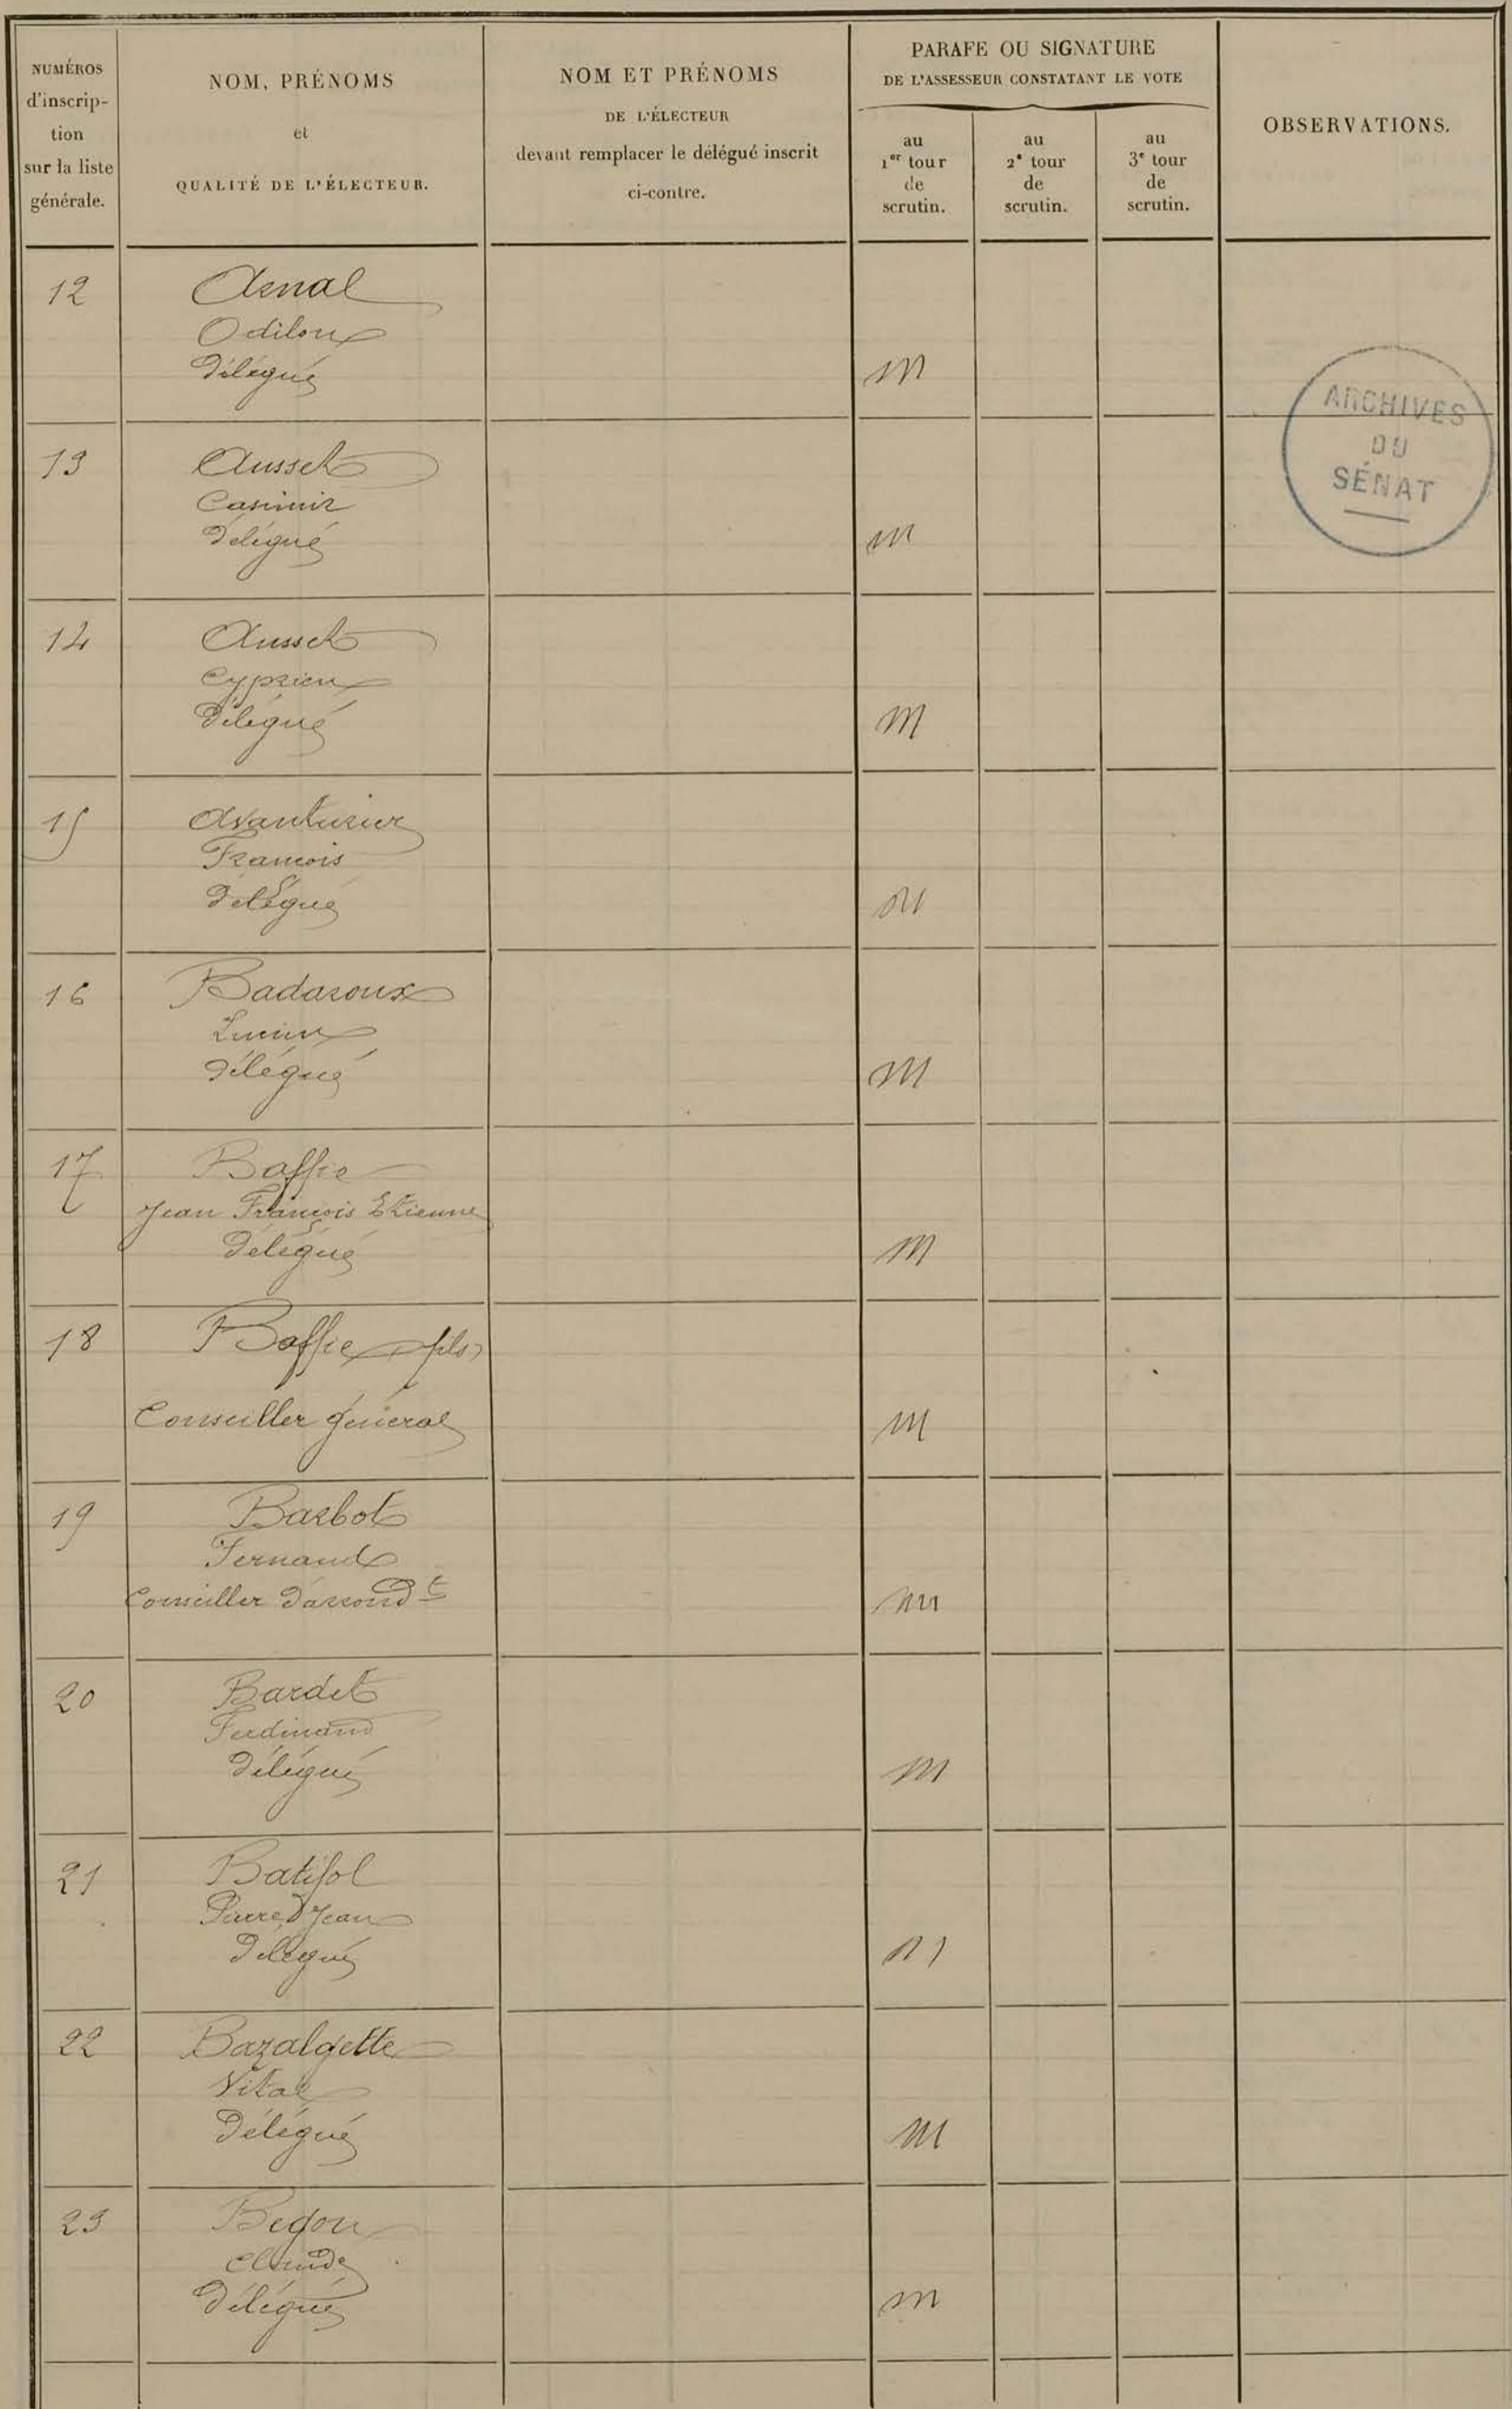 NUMÉROS
d'inscrip-
tion
sur la liste
générale.
NOM, PRÉNOMS
et
QUALITÉ DE L'ÉLECTEUR.
NOM ET PRÉNOMS
DE L'ÉLECTEUR
devant remplacer le délégué inscrit
ci-contre.
PARAFE OU SIGNATURE
DE L'ASSESSEUR CONSTATANT LE VOTE
au
1er tour
de
scrutin.
au
2e tour
de
scrutin.
au
3e tour
de
scrutin.
OBSERVATIONS.
12
Arnal
Odilon
Délégué
m
ARCHIVES
DU
SÉNAT
13
Ausset
Casimir
Délégué
m
14
Ausset
Cyprien
Délégué
m
15
Avanturier
François
Délégué
m
16
Badaroux
Lucien
Délégué
m
17
Baffie
Jean François Etienne
Délégué
m
18
Baffie fils
Conseiller général
m
19
Barbot
Fernand
Conseiller d'arrondt
m
20
Bardet
Ferdinand
Délégué
m
21
Batifol
Pierre, Jean
Délégué
m
22
Bazalgette
Vital
Délégué
m
23
Begon
Claude
Délégué
m